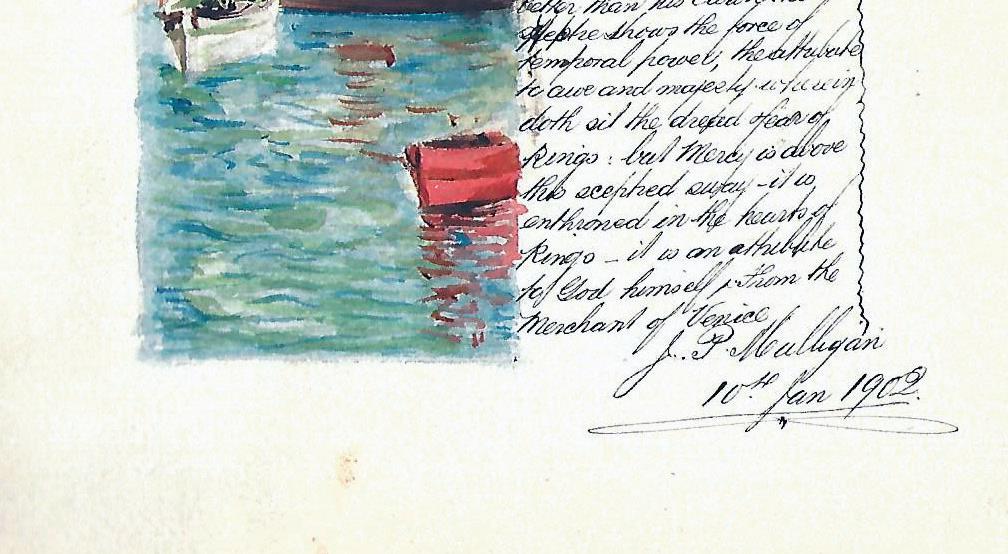 better than his crown. His
Scepter shows the force of
temporal power, the attribute
to awe and majesty wherein
doth sit the dread & fear of
Kings: but Mercy is above
this sceptred sway - it is
enthroned in the hearts of
Kings - it is an attribute
to God himself, From the
Merchant of Venice
J. P. Mulligan
10th Jan 1902.